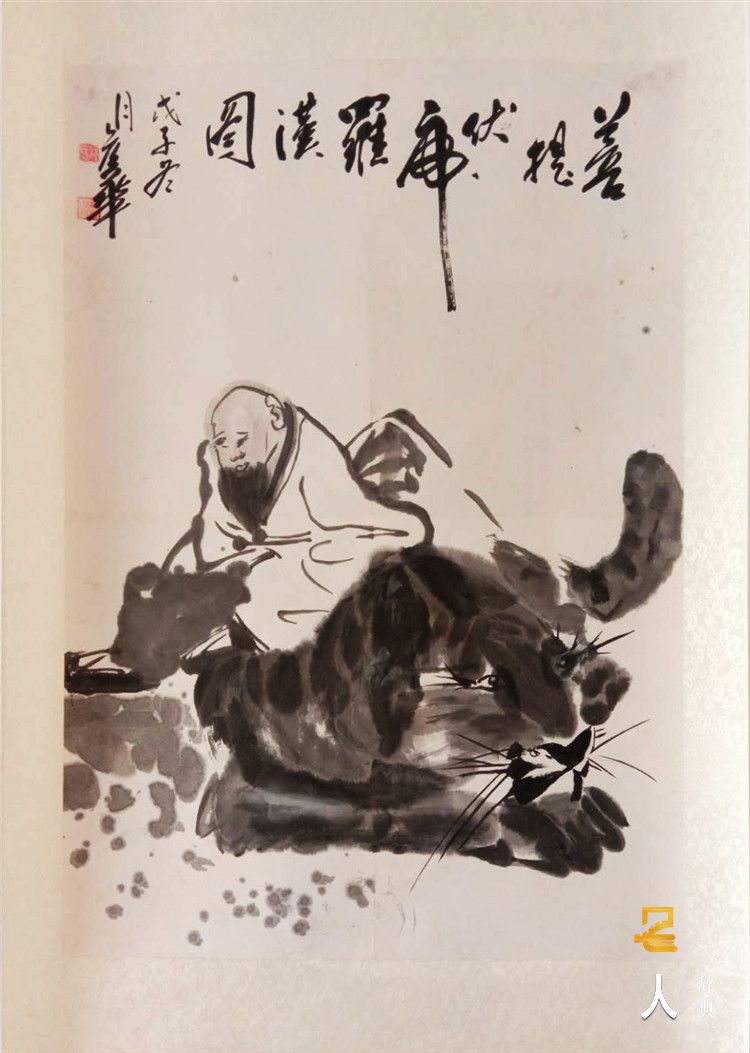 菩提伏虎羅漢圖
戊子冬
名人
辞典